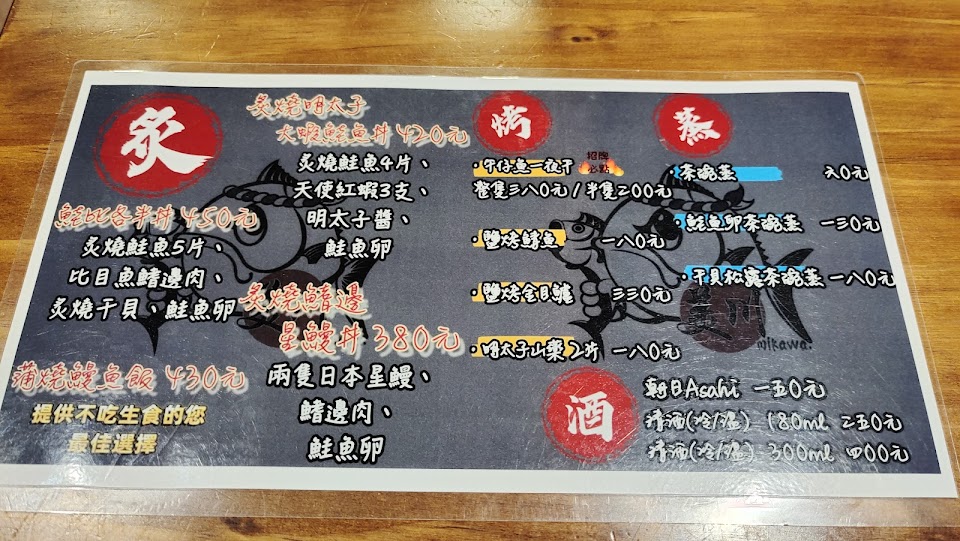 炙
炙燒明太子
大蝦鮭魚丼 420元
炙燒鮭魚4片、
天使紅蝦3支、
明太子醬、
鮭魚卵
鮭比各半丼 450元
炙燒鮭魚5片、
比目魚鰭邊肉、
炙燒干貝、鮭魚卵
炙燒鰭邊
星鰻丼 380元
兩隻日本星鰻、
鰭邊肉、
鮭魚卵
蒲燒鰻魚飯 430元
提供不吃生食的您
最佳選擇
烤
·午仔魚一夜干
招牌
必點
整隻三八0元/半隻二00元
·鹽烤鯖魚 一八0元
·鹽烤金目鱸 三三0元
·明太子山棗2片 一八0元
蒸
·茶碗蒸 八0元
·鮭魚卵茶碗蒸 一三0元
·干貝松露茶碗蒸 一八0元
mikawa.
酒
朝日Asahi 一五0元
清酒(冷/溫) 180ml 二五0元
清酒(冷/溫) 300ml 四00元